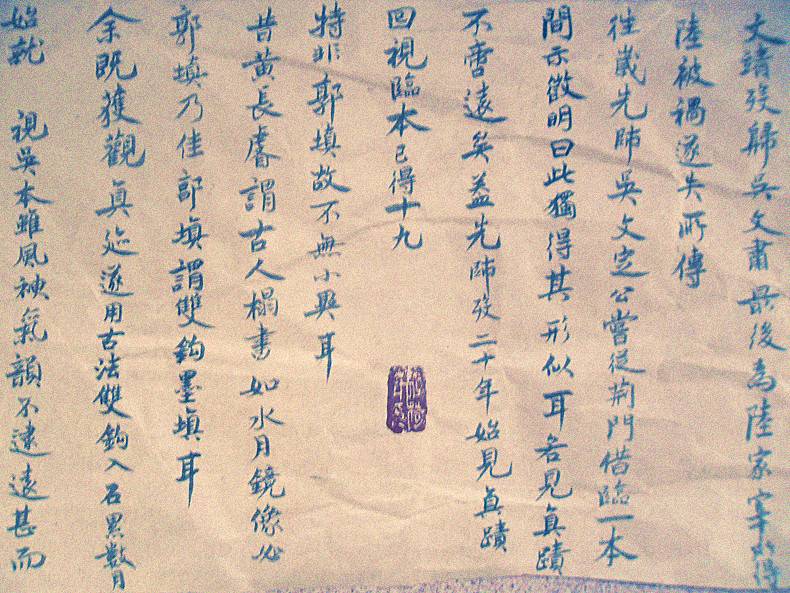 文靖歿歸吳文肅最後為陸冢宰所得
陸被禍遂失所傳
往歲先師吳文定公嘗從荊門借臨一本
間示徵明曰此獨得其形似耳若見真蹟
不啻遠矣蓋先師歿二十年始見真蹟
回視臨本已得十九
特非郭填故不無小異耳
昔黃長睿謂古人搨書如水月鏡像必
郭填乃佳郭填謂雙鈎墨填耳
余既獲觀真迹遂用古法雙鈎入石累數月
始就 視吳本雖風神氣韻不逮遠甚而